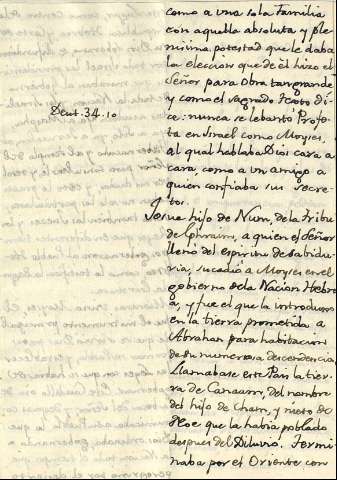 como a una sola Familia
con aquella absoluta y ple
nisima potestad que le daba
la eleccion que de èl hizo el
Señor para obra tan grande
y como el sagrado Texto di
ce: nunca se lebantò Profe
Deut. 34. 10
ta en Israel como Moyses,
al qual hablaba Dios cara a
cara, como a un amigo a
quien confiaba sus secre
tos.
Josue hijo de Nun, de la tribu
de Ephraim, a quien el Señor
llenó del espiritu de sabidu
ria, sucediò a Moyses en el
gobierno de la Nacion Hebre
a, y fue el que la introduxo
en la tierra prometida a
Abrahan para habitacion
de su numerosa descendencia
Llamabase este Pais la tier
ra de Canaam, del nombre
del hijo de Cham, y nieto de
Noe que la habia poblado
despues del Diluviò. Termi
naba por el Oriente con